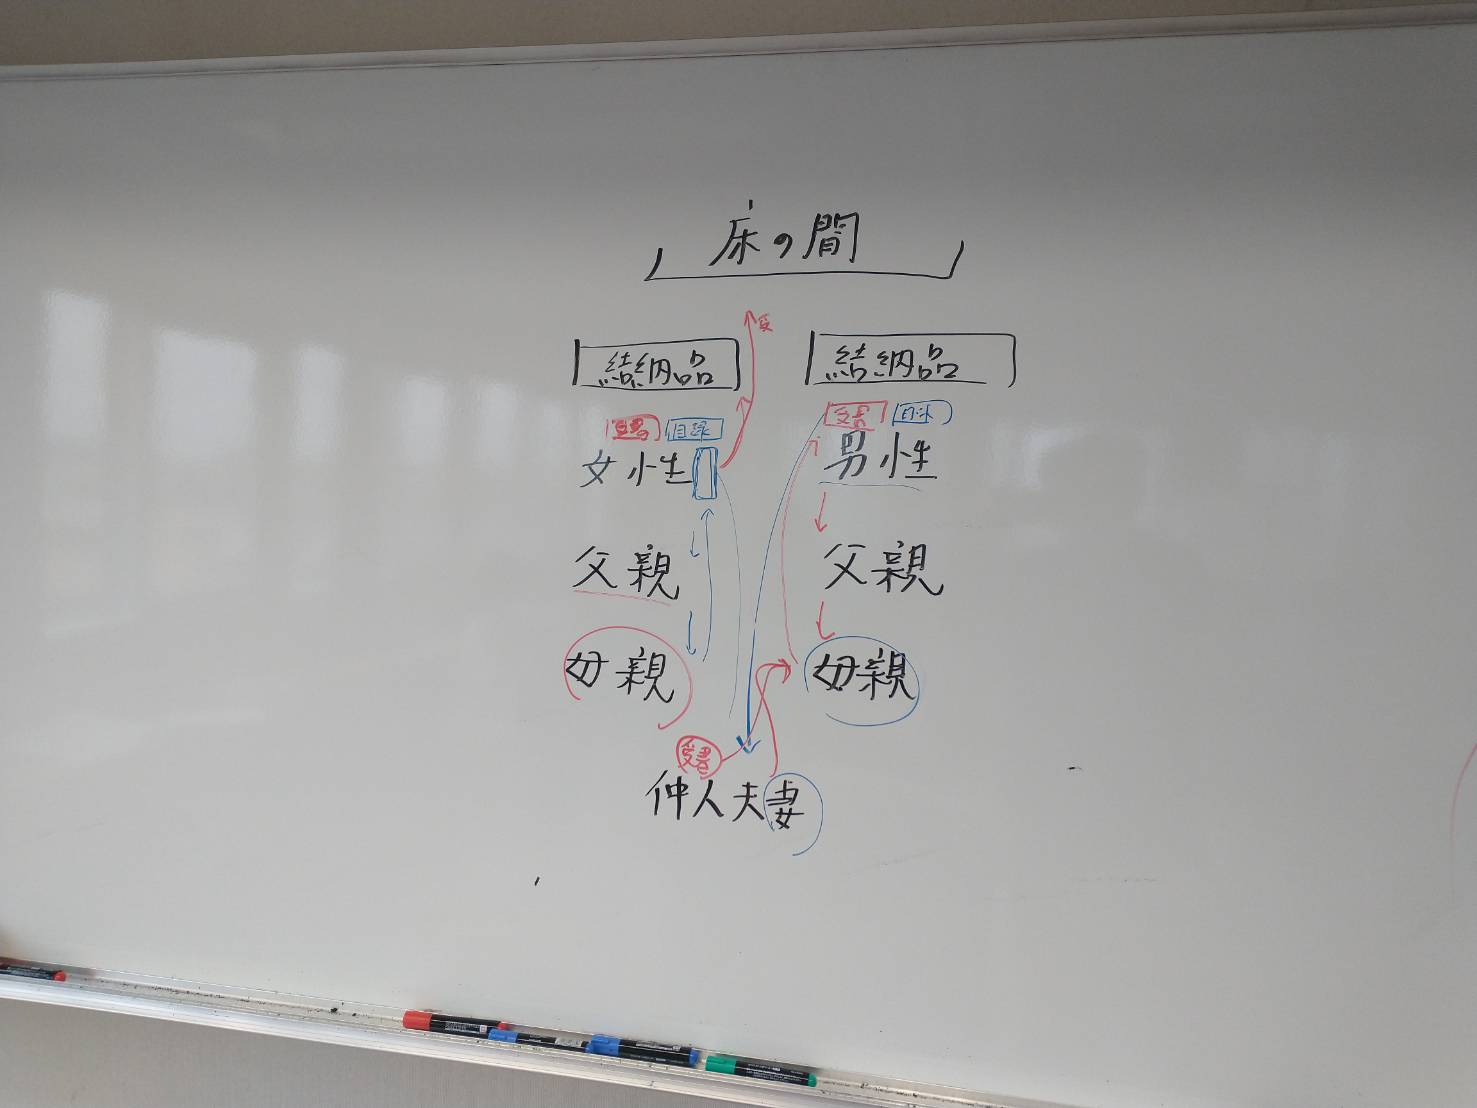 床の間
結納品 結納品
受書 目録 受書 目録
女性 男性
父親 父親
母親 母親
受書
仲人夫妻